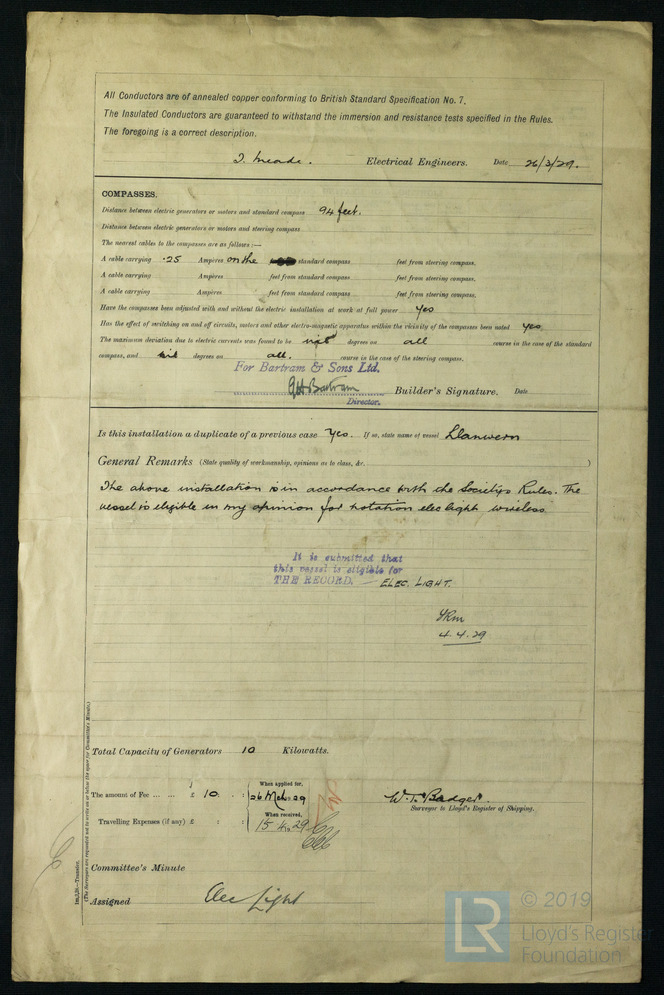 All Conductors are of annealed copper conforming to British Standard Specification No. 7.
The Insulated Conductors are guaranteed to withstand the immersion and resistance tests specified in the Rules.
The foregoing is a correct description.
J. Meade. Electrical Engineers. Date 26/3/29.
COMPASSES.
Distance between electric generators or motors and standard compass 94 feet.
Distance between electric generators or motors and steering compass
The nearest cables to the compasses are as follows:—
A cable carrying .25 Ampères on the standard compass feet from steering compass.
A cable carrying Ampères feet from standard compass feet from steering compass.
A cable carrying Ampères feet from standard compass feet from steering compass.
Have the compasses been adjusted with and without the electric installation at work at full power Yes
Has the effect of switching on and off circuits, motors and other electro-magnetic apparatus within the vicinity of the compasses been noted Yes.
The maximum deviation due to electric currents was found to be nil degrees on all course in the case of the standard
compass, and nil degrees on all. course in the case of the steering compass.
For Bartram & Sons Ltd.
Bartram Builder's Signature. Date
Director.
Is this installation a duplicate of a previous case Yes. If so, state name of vessel Llanwern
General Remarks (State quality of workmanship, opinions as to class, &c. )
The above installation is in accordance with the Societys Rules. The
vessel is eligible in my opinion for notation elec light wireless
It is submitted that
this vessel is eligible for
THE RECORD. — ELEC. LIGHT.
4.4.29
Total Capacity of Generators 10 Kilowatts.
The amount of Fee ... ... £ 10. : :
When applied for,
26 Mch 29
W. T. Badger.
Surveyor to Lloyd's Register of Shipping.
Travelling Expenses (if any) £ : :
When received,
15.4.29
Committee's Minute
Assigned Elec Light
(The Surveyors are requested not to write on or below the space for Committee's Minute.)
© 2019
LR Lloyd's Register
Foundation